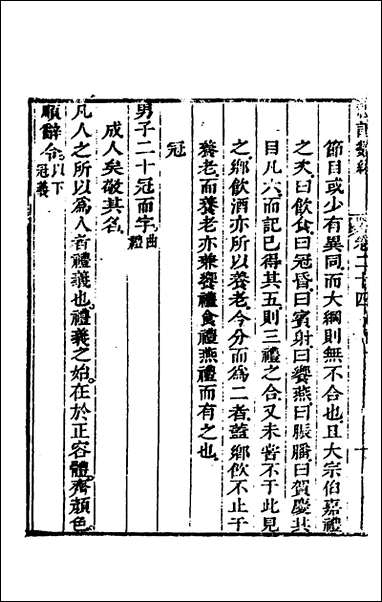 卷二十四
節目或少有異同而大綱則無不合也且大宗伯嘉禮
之夭曰飲食曰冠昏曰賓射曰饗燕曰脤膰曰賀慶其
目凡六而記已得其五則三禮之合又未嘗不于此見
之鄉飲酒亦所以養老今分而為二者蓋鄉飲不止于
養老而養老亦兼饗禮食禮燕禮而有之也
冠
男子二十冠而字曲禮
成人矣敬其名
凡人之所以為人者禮義也禮義之始在於正容體齊顏色
順辭令以下冠義